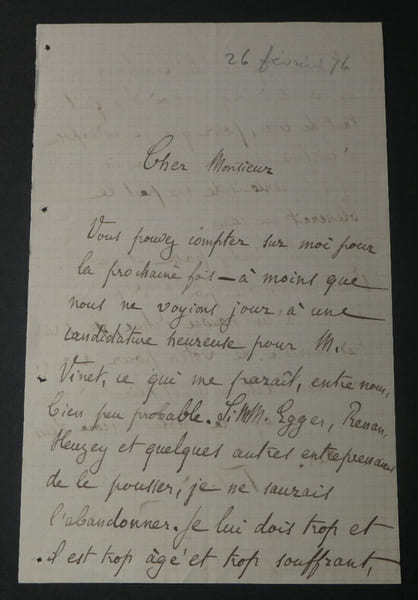 26 février 76
Cher Monsieur
Vous pouvez compter sur moi pour
la prochaine fois — à moins que
nous ne voyions jour à une
candidature heureuse pour M.
Vinet, ce qui me paraît, entre nous,
bien peu probable. Si MM. Egger, Renan,
Heuzey et quelques autres entreprenaient
de le pousser, je ne saurais
l'abandonner. Je lui dois trop et
il est trop âgé et trop souffrant,